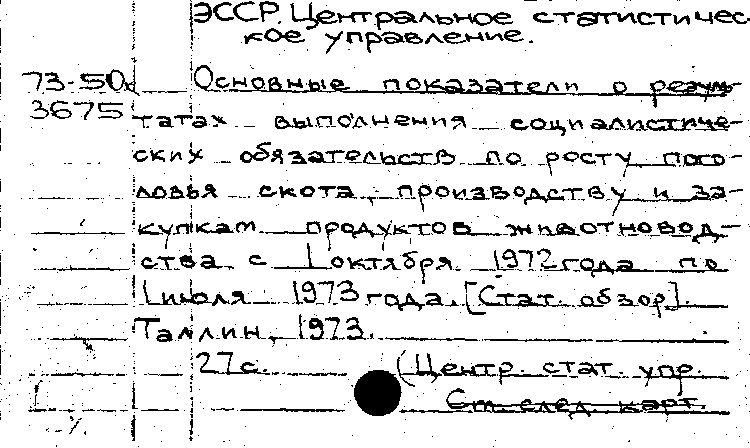 ЭССР. Центральное статистичес
кое управление.
73-50к Основные показатели о резуль-
3675 татах выполнения социалистиче-
ских обязательств по росту пого-
ловья скота, производству и за-
купкам продуктов животновод-
ства с 1 октября 1972 года по
1 июля 1973 года. [Стат. обзор].
Таллин, 1973.
27с. (Центр. стат. упр.
См. след. карт.